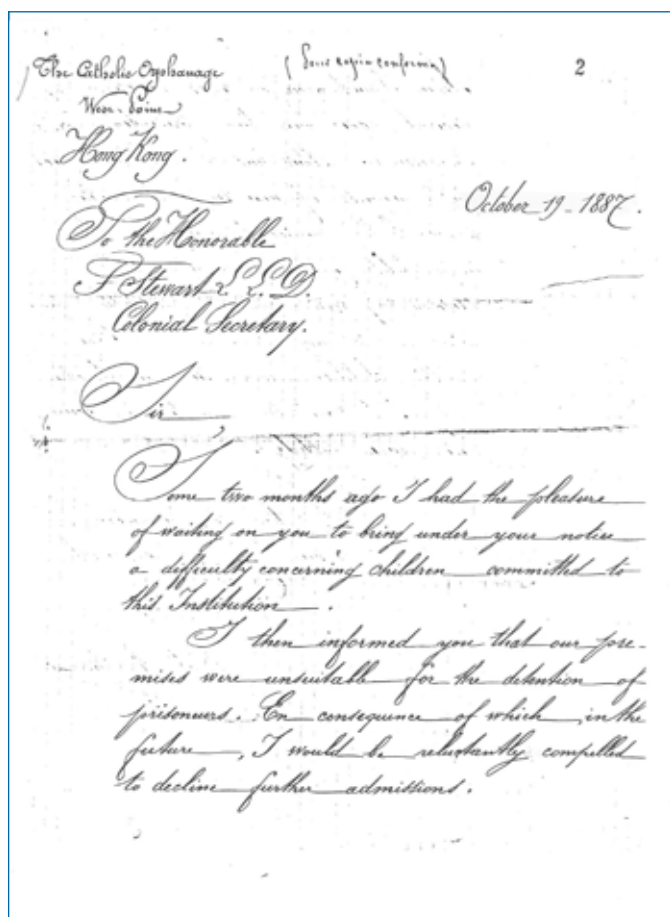 The Catholic Orphanage
(Pour copie conforme)
2
West-Point
Hong Kong.
October 19-1887.
To the Honorable
F Stewart L.L.D.
Colonial Secretary.
Sir,
Some two months ago I had the pleasure
of waiting on you to bring under your notice
a difficulty concerning children committed to
this Institution.
I then informed you that our pre-
mises were unsuitable for the detention of
prisoneurs. En consequence of which, in the
future, I would be reluctantly compelled
to decline further admissions.